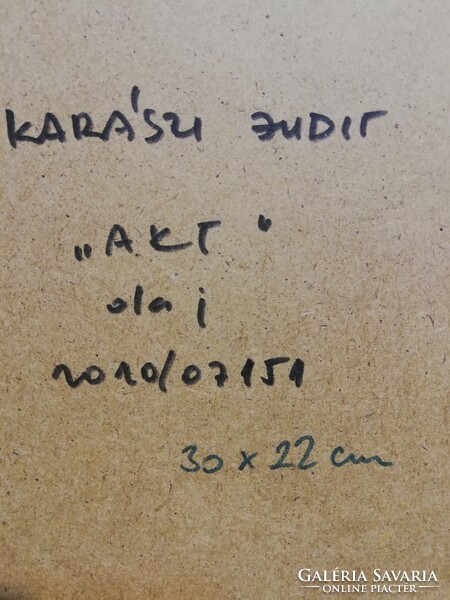 KARÁSZI JUDIT
„AKT"
olaj
2020/07151
30 x 22 cm
GALÉRIA SAVARIA
ONLINE PIACTÉR